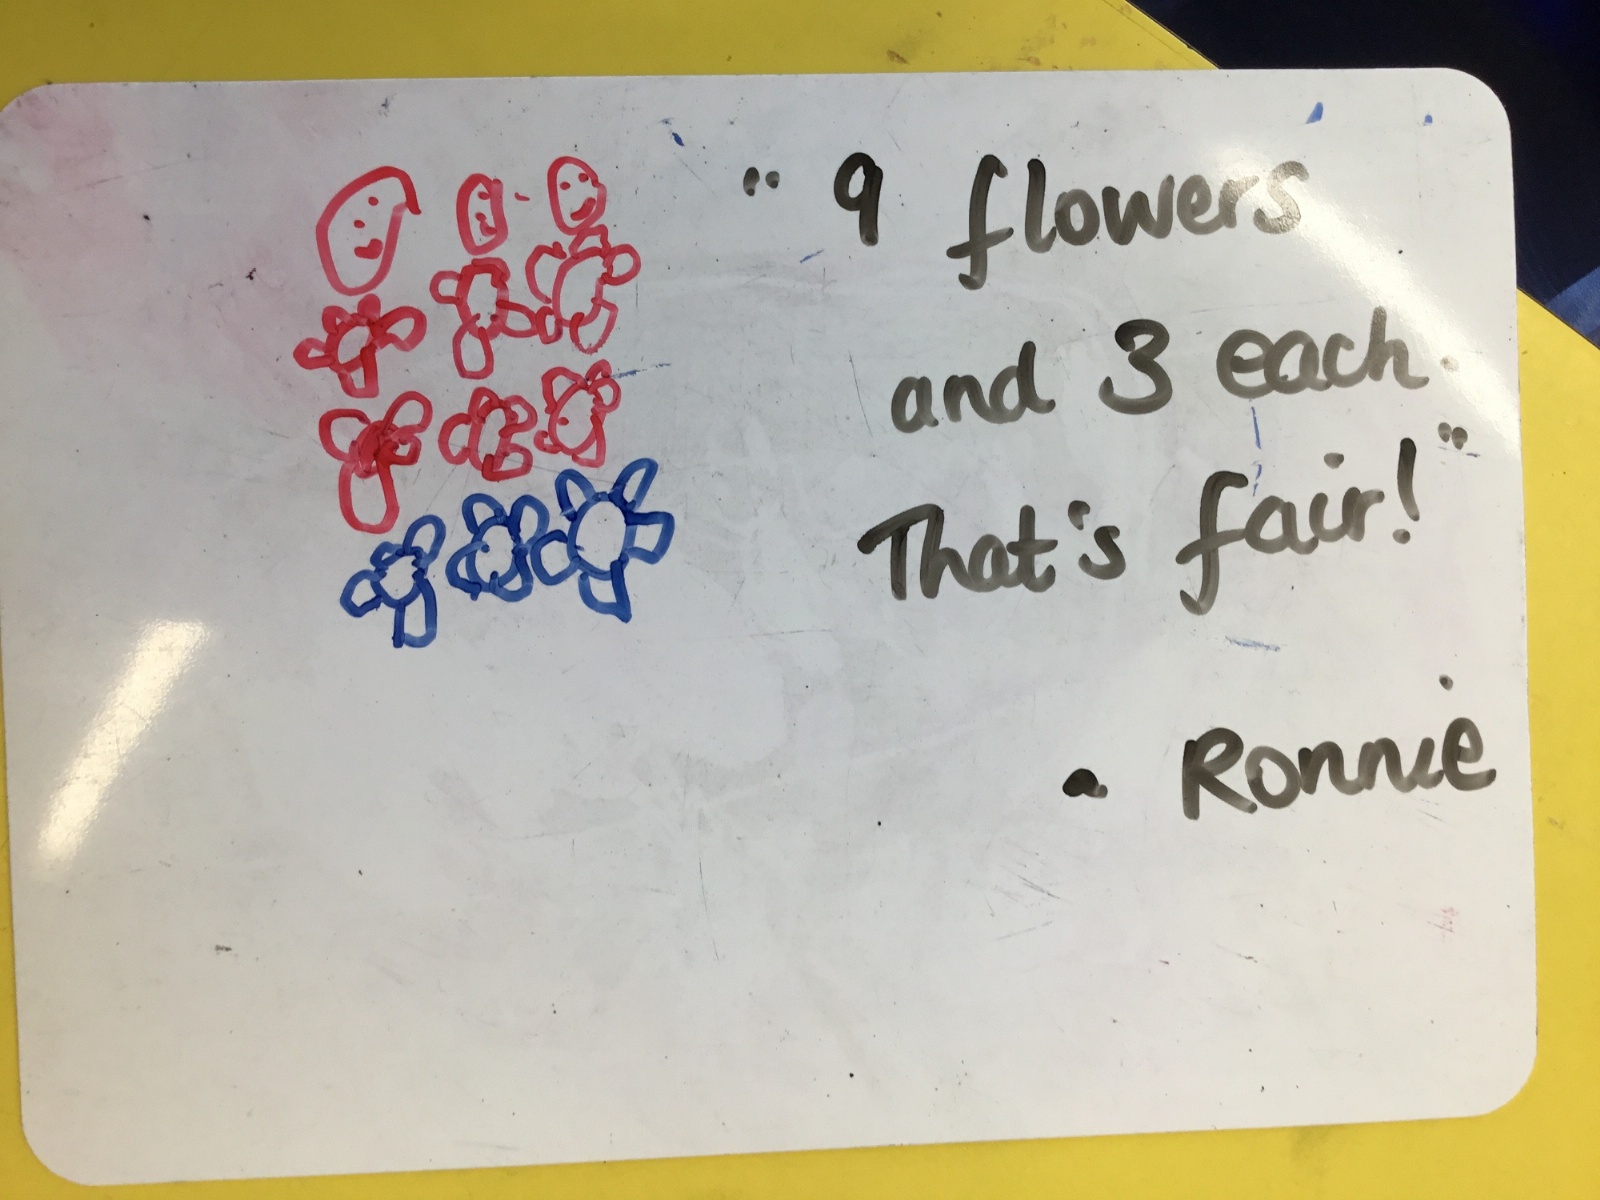 " 9 flowers
and 3 each.
That's fair!"
- Ronnie